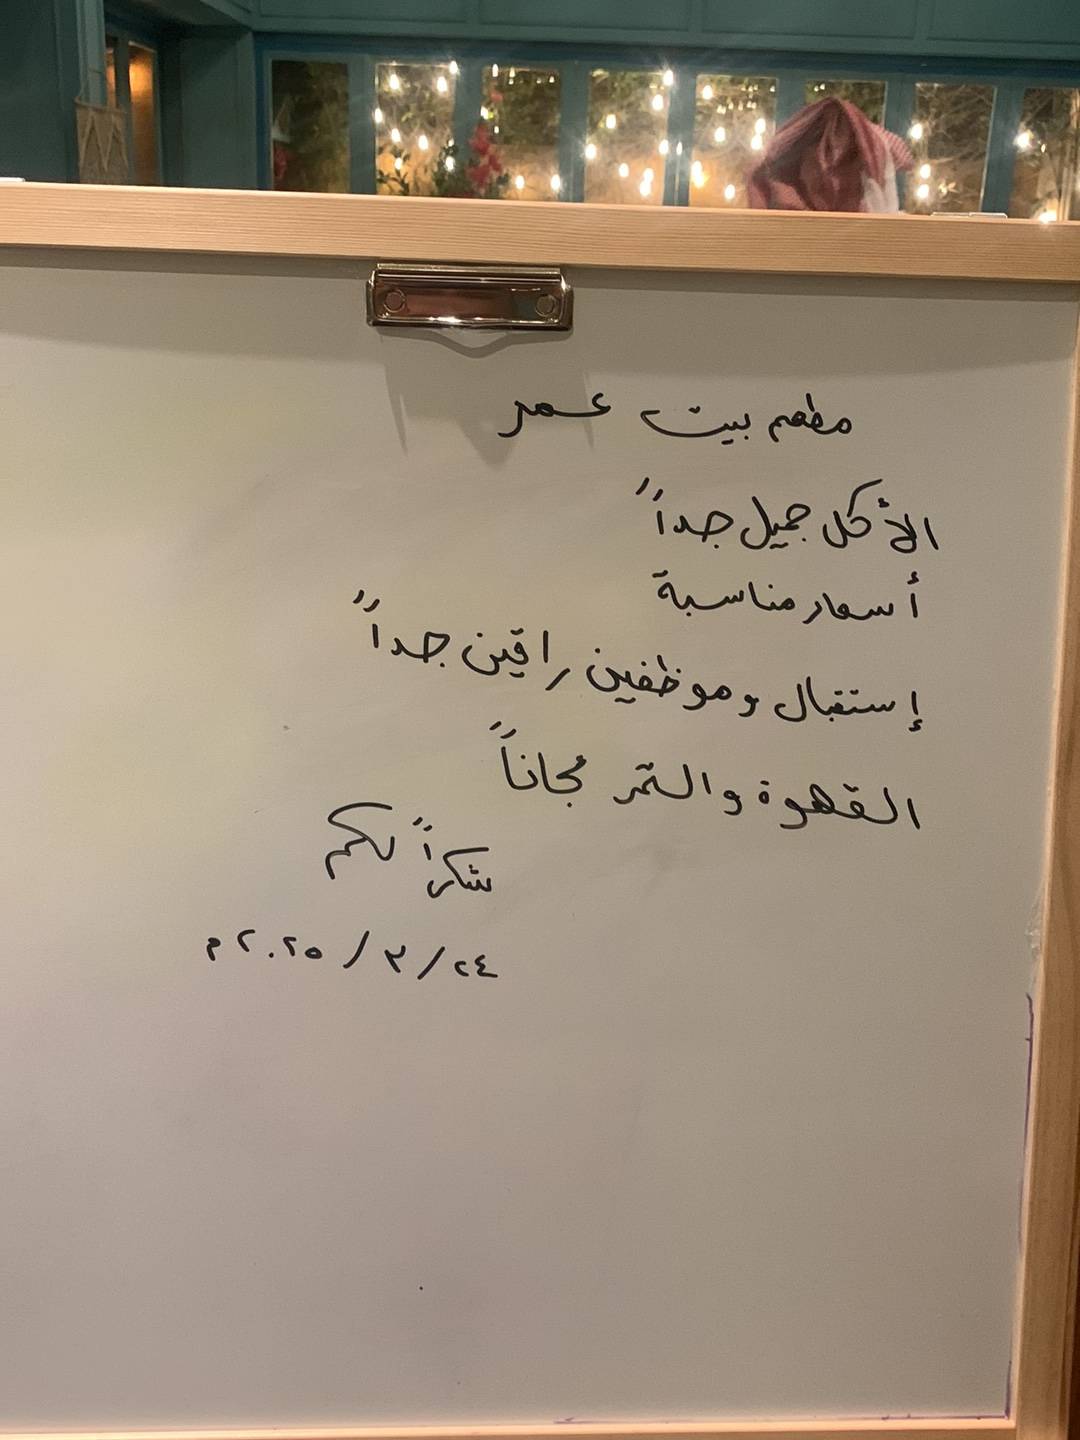 مطعم بيت عمر
الأكل جميل جداً
أسعار مناسبة
إستقبال وموظفين راقين جداً
القهوة والتمر مجاناً
شكراً لكم
٢٤ / ٣ / ٢٠٢٥ م